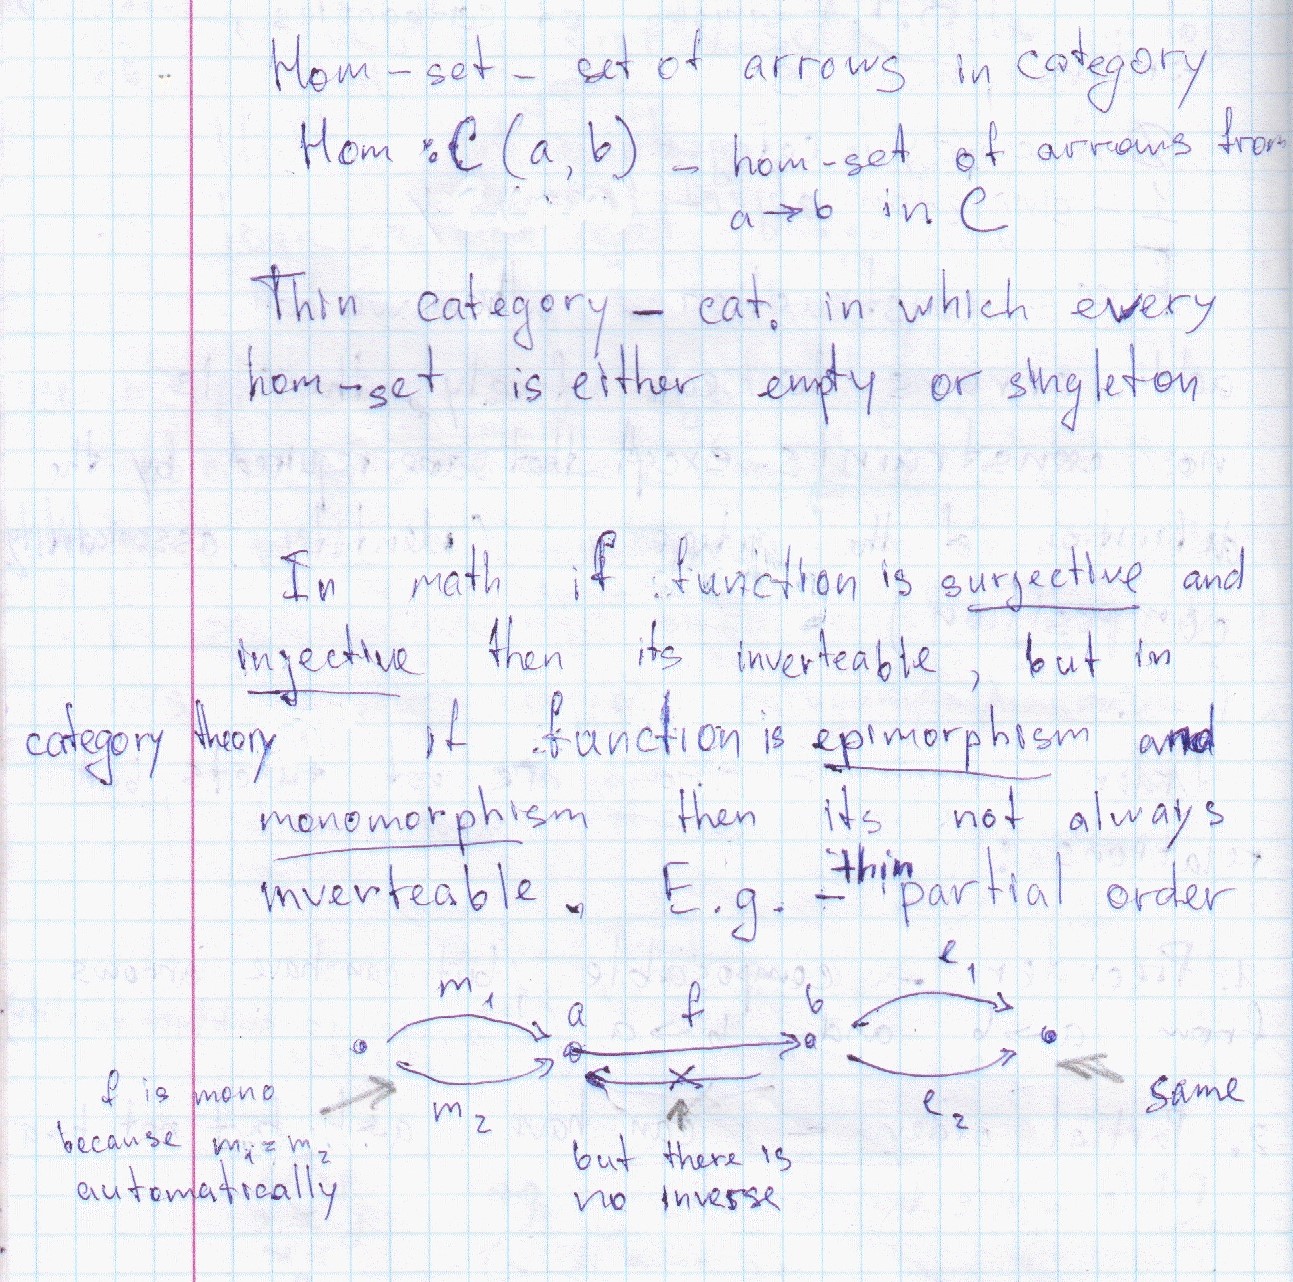 Hom-set - set of arrows in category
Hom : C (a, b) - hom-set of arrows from
a → b in C
Thin category - cat. in which every
hom-set is either empty or singleton
In math if function is surjective and
injective then its inverteable, but in
category theory if function is epimorphism and
monomorphism then its not always
inverteable. E.g. - thin partial order
m1 a f b e1
m2 e2
f is mono
because m1 = m2
automatically
but there is
no inverse
same